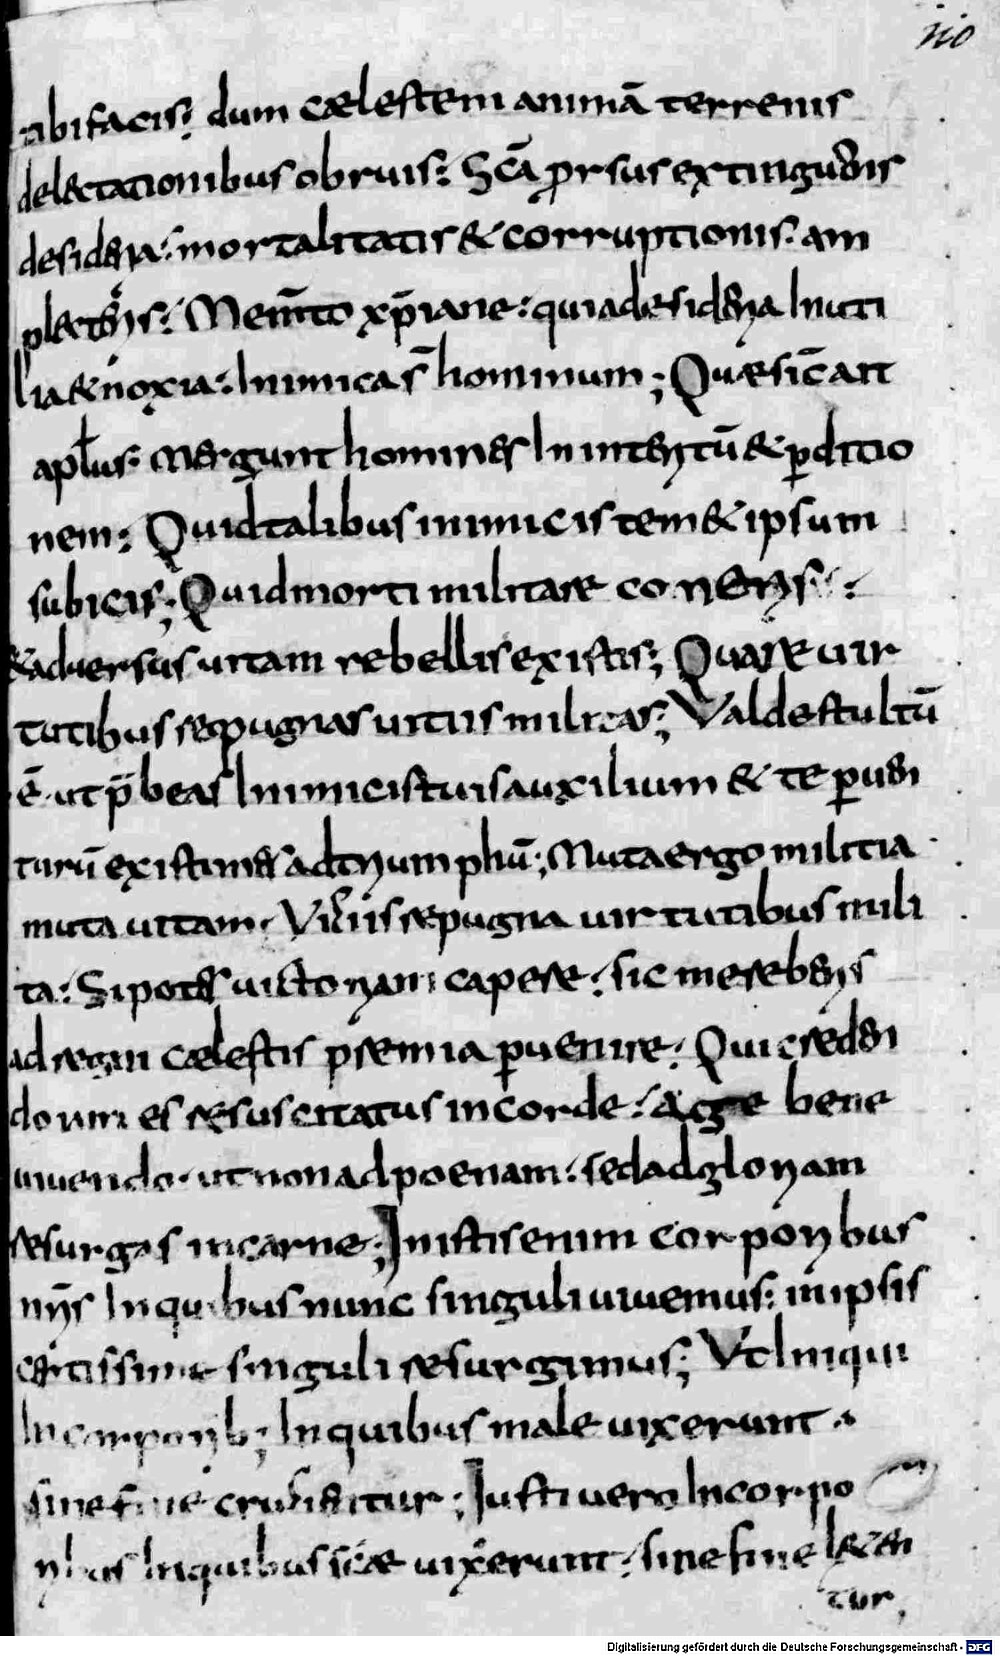 110
tibi facis; dum cælestem animā terrenis
delectationibus obruis; Scā prorsus extinguens
desideria; mortalitatis & corruptionis am
plecteris; Memto xp̄iane; quia desideria Inuti
lia & noxia; Inimica s̄ hominum; Quæ sic̄ ait
apłus; Mergunt homines In interitū & perditio
nem; Quid talibus inimicis tem&ipsum
subicis; Quid morti militare coneris;
& aduersus uitam rebellis existis; Quare uir
tutibus repugnas uitiis militas; Valde stultū
ē ut p̄beas Inimicis tuis auxilium & te peruen
turū existimes ad triumphū; Muta ergo militia
muta uitam. Vitiis repugna uirtutibus mili
ta; Si potes uictoriam capere; sic mereberis
ad regni cælestis premia peruenire; Qui creden
do iam es resuscitatus in corde; age bene
uiuendo. ut non ad poenam; sed ad gloriam
resurgas in carne; In istis enim corporibus
nr̄is In quibus nunc singuli uiuemus; in ipsis
certissime singuli resurgimus; Vt Iniqui
In corporib; In quibus male uixerunt.
sine fine crucientur; Iusti uero In corpo
ribus In quibus sc̄æ uixerunt; sine fine læten
tur,
Digitalisierung gefördert durch die Deutsche Forschungsgemeinschaft - DFG